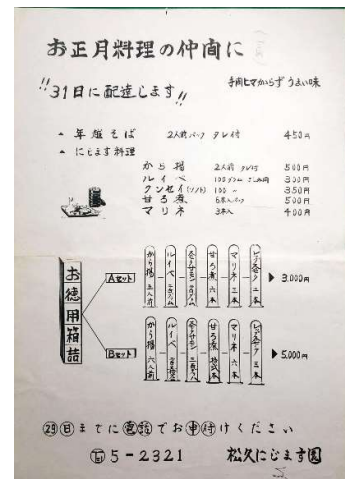 お正月料理の仲間に
!!31日に配達します!!
手間ヒマからず うまい味
年越そば 2人前パック タレ付 450円
にじます料理
から揚 2人前 タレ付 500円
ルイベ 100グラム さしみ用 300円
クンセイ(ソフト) 100 〃 350円
甘ろ煮 6本入パック 500円
マリネ 3本入 400円
お徳用箱詰
Aセット
から揚 五人前
ルイベ
甘ろ煮 六本
マリネ 三本
3,000円
Bセット
から揚 六人前
ルイベ
甘ろ煮 拾弐本
マリネ 六本
5,000円
29日までに電話でお申付けください
5-2321 松久にじます園